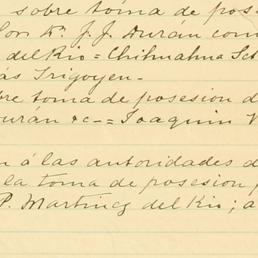 sobre toma de pose
Don Dr. J. J. Durán com
del Rio = Chihuahua Sc
ás Irigoyen -
bre toma de posesion d
Duran &c - = Joaquin V
n á las autoridades d
la toma de posesion,
P. Martinez del Rio; a